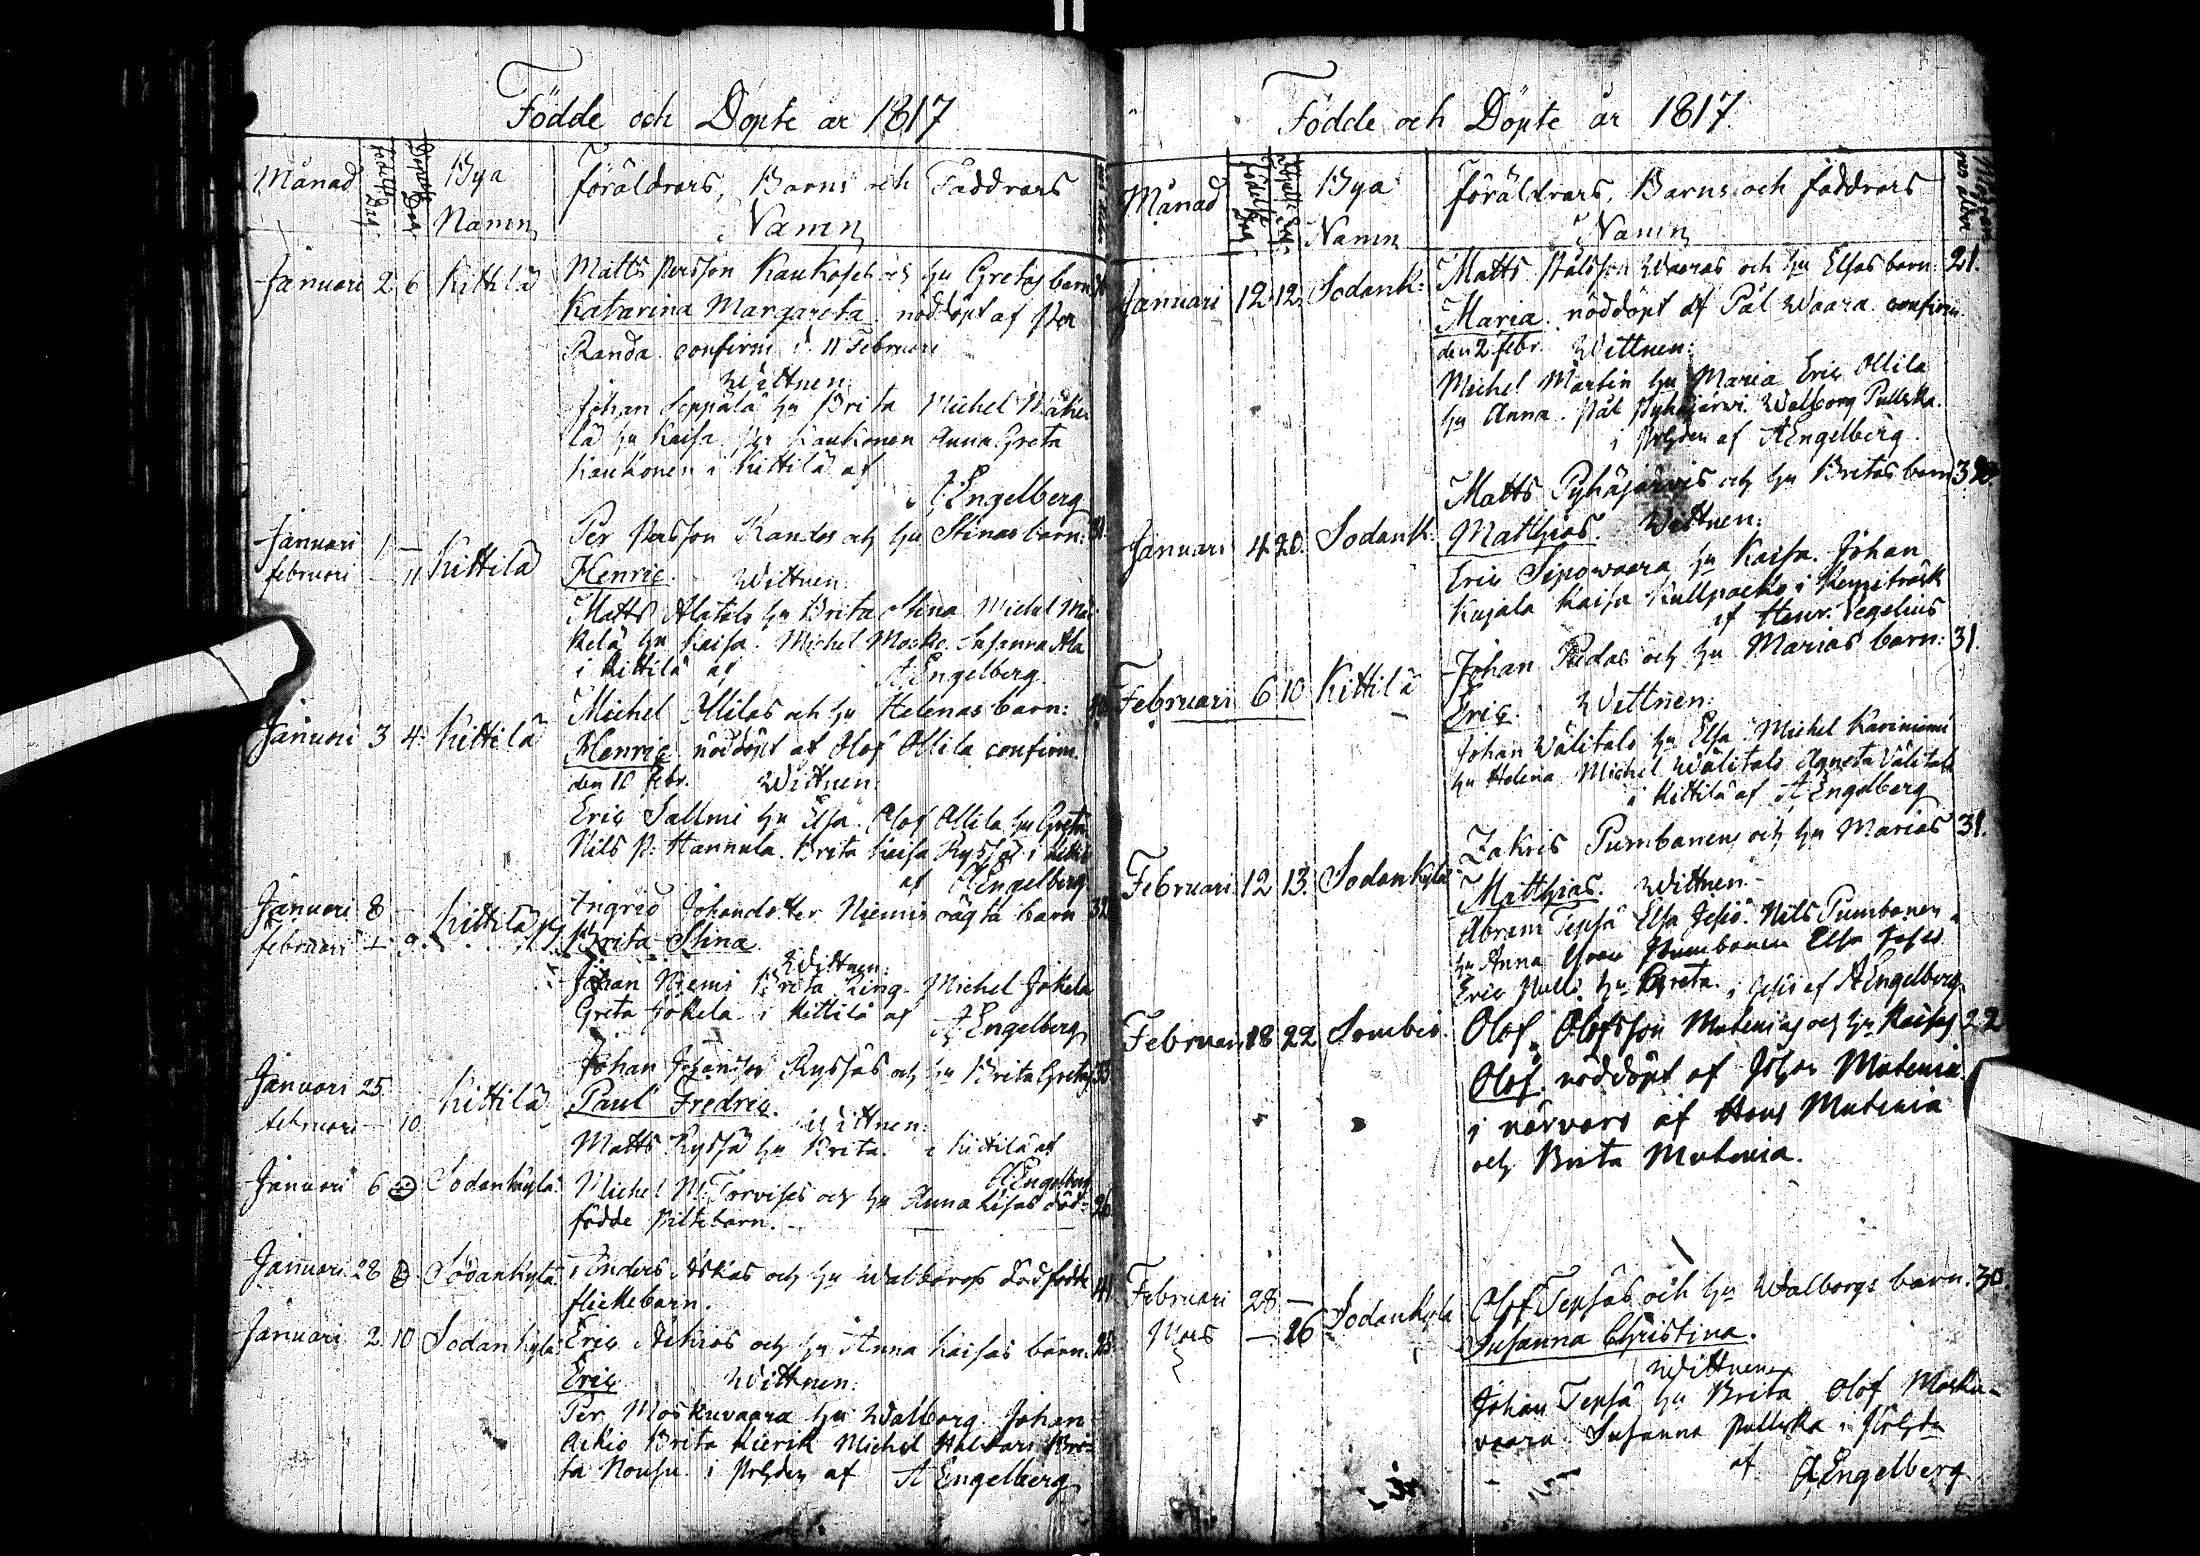 Födde och Döpte år 1817
Månad
Bya
Namn
föräldrars, Barns och Faddrars
Namn
Januari 2 6 Kittilä Matts Persson och hu Gretas barn
Katarina Margareta. nöddöpt af Per
Randa. confirm d. 11 Februari
Wittnen:
Johan Seppälä hu Brita Michel Mäke
lä hu Kaisa. Per Kaukonen Anna Greta
Kaukonen i Kittilä af
A Engelberg
Januari 1 — Kittilä Per Persson Randas och hu Stinas barn: 31.
februari — 11 Henric. Wittnen:
Matts Alatalo hu Brita Stina Michel Mä
kelä hu Kaisa. Michel Susanna Ala
i Kittilä af A Engelberg.
Januari 3 4. Kittilä Michel Ollilas och hu Helenas barn: 40
Henric nöddöpt af Olof Ollila confirm.
den 10 febr. Wittnen:
Eric Sallmi hu Elsa. Olof Ollila hu Greta
Nils P. Hannula. Brita Kaisa i
af A Engelberg
Januari 8 — Kittilä Ingrid Johansdotter Niemis oägta barn 32
februari — 9. Brita Stina
Wittnen:
Johan Niemi Brita Ring. Michel Jokela
Greta Jokela i Kittilä af
A Engelberg
Januari 25. Kittilä Johan och hu Brita Gretas 33
februari — 10 Paul Fredric.
Wittnen:
Matts hu Brita. i Kittilä af
A Engelberg
Januari 6 Sodankylä Michel M. Torvises och hu Anna Lisas död- 26
födde piltebarn.
Januari 28 Sodankylä Anders Askas och hu Walborgs dödfödde 41
flickebarn.
Januari 2 10 Sodankylä Eric Aikios och hu Anna Kaisas barn. 25
Eric Wittnen:
Per Moskuvaara hu Walborg. Johan
Aikio Brita Kierik Michel Bri-
ta i af A Engelberg
Födde och Döpte år 1817.
Månad
Bya
Namn
föräldrars, Barns och faddrars
Namn
Januari 12 12 Sodank: Matts Pålsson Waaras och hu Elsas barn: 21.
Maria. nöddöpt af Pål Waara. confirm.
den 2 febr. Wittnen:
Michel Martin hu Maria Eric Ollila
hu Anna. Pål Pyhäjärwi. Walborg Pulska.
i af A Engelberg.
Januari 4 20. Sodank: Matts Pyhäjärvis och hu Britas barn
Matthias. Wittnen:
Eric Sipowaara hu Kaisa. Johan
Kujala Kaisa i Kemiträsk
af Henr. Vegelius
Februari 6 10 Kittilä Johan Pudas och hu Marias barn: 31.
Eric. Wittnen:
Johan Wälitalo hu Elsa Michel Kariniemi
hu Helena Michel Wälitalo Agneta Välitalo
i Kittilä af A Engelberg
Februari 12 13. Sodankylä Zakris Pumbanens och hu Marias 31.
Matthias. Wittnen
Abram Tepsä Elsa Jesiö. Nils Pumbanen
hu Anna Pumbanen Elsa
Eric hu Greta. i af A Engelberg
Februari 18 22 Sombio Olof Olofsson Mutenias och hu Kaisas 22
Olof. nöddöpt af Johan Mutenia
i närvaro af Hans Mutenia
och Brita Mutenia.
Februari 28 — Sodankylä Olof Tepsas och hu Walborgs barn. 30
Mars — 16 Susanna Christina.
Wittnen
Johan Tepsä hu Brita Olof Mosku-
vaara. Susanna Pulska i
af A Engelberg